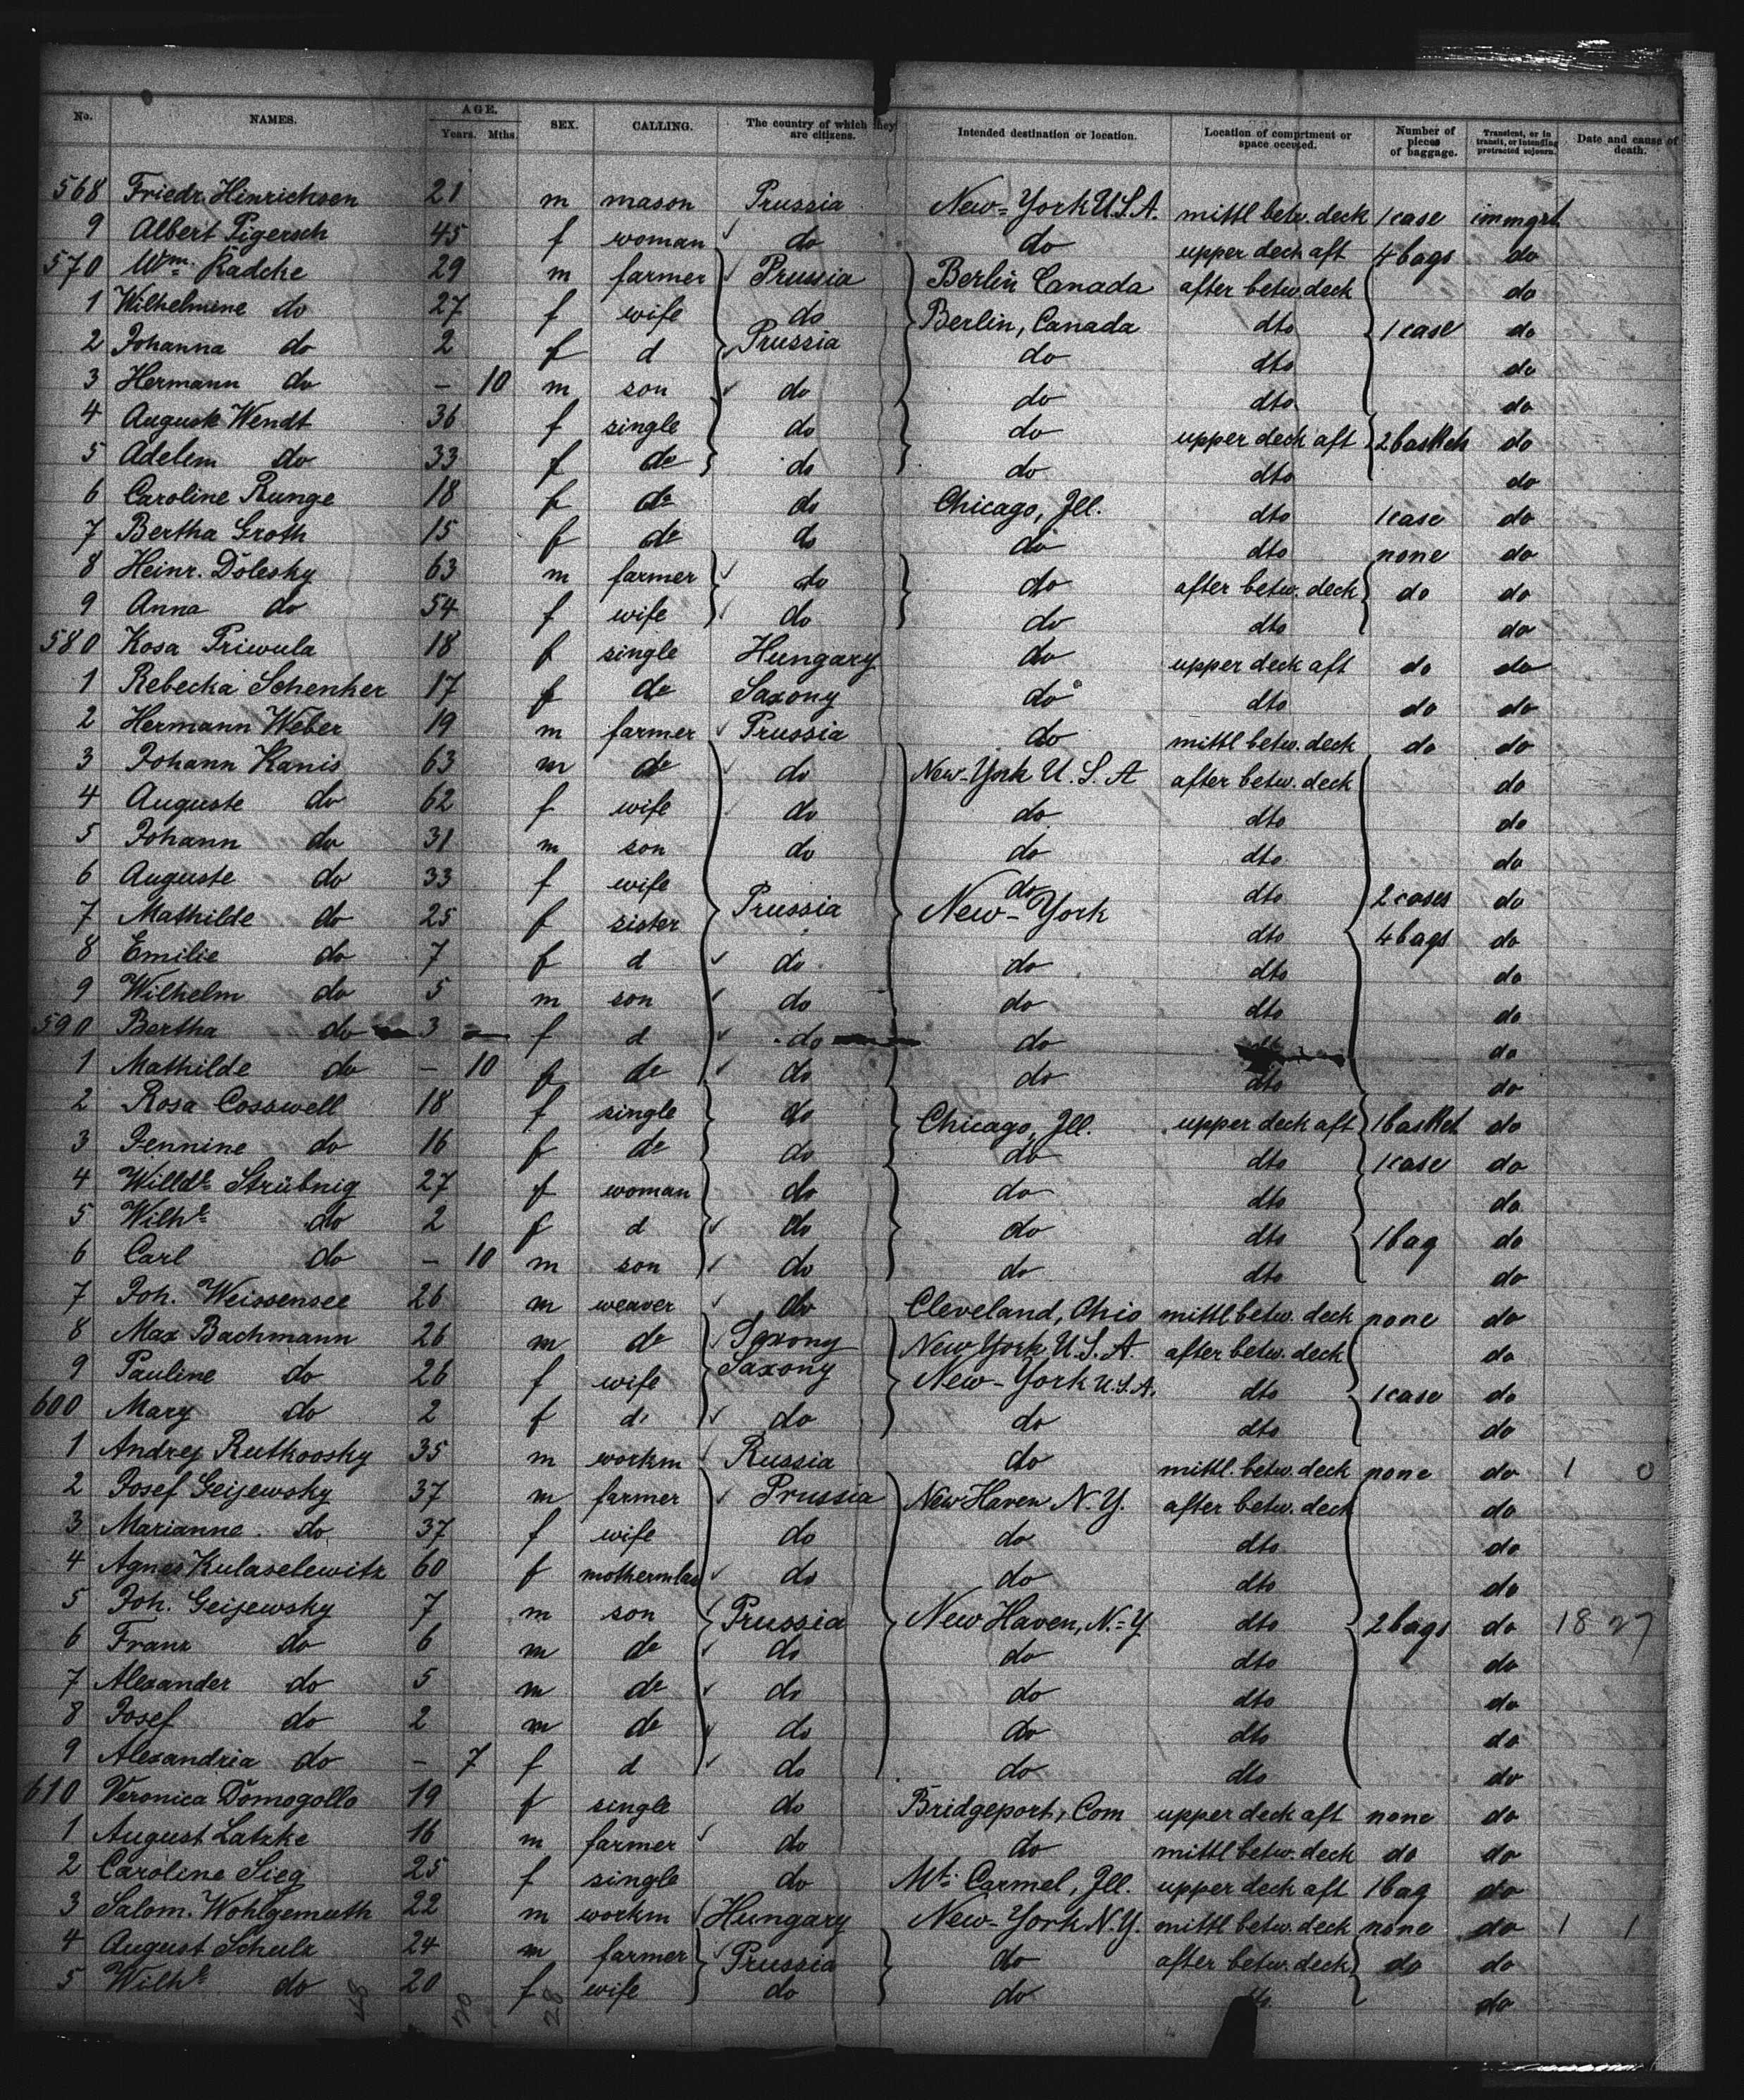 No. NAMES. AGE. Years. Mths. SEX. CALLING. The country of which they are citizens. Intended destination or location. Location of comprtment or space occuped. Number of pieces of baggage. Transient, or in transit, or intending protracted sojourn. Date and cause of death.
568 Friedr. Hinrichsen 21 m mason Prussia New-York U.S.A. mittl betw. deck 1 case immgrt
9 Albert Pigersch 45 f woman do do upper deck aft 4 bags do
570 Wm. Radcke 29 m farmer Prussia Berlin Canada after betw. deck do
1 Wilhelmine do 27 f wife do Berlin, Canada dto 1 case do
2 Johanna do 2 f d Prussia do dto do
3 Hermann do – 10 m son do do dto do
4 August Wendt 36 f single do do upper deck aft 2 baskets do
5 Adelim do 33 f do do do dto do
6 Caroline Runge 18 f do do Chicago, Ill. dto 1 case do
7 Bertha Groth 15 f do do do dto none do
8 Heinr. Dolesky 63 m farmer do do after betw. deck do do
9 Anna do 54 f wife do do dto do
580 Rosa Priwula 18 f single Hungary do upper deck aft do do
1 Rebecka Schenker 17 f do Saxony do dto do do
2 Hermann Weber 19 m farmer Prussia do mittl betw. deck do do
3 Johann Kanis 63 m do do New-York U.S.A after betw. deck do
4 Auguste do 62 f wife do do dto do
5 Johann do 31 m son do do dto do
6 Auguste do 33 f wife do dto 2 cases do
7 Mathilde do 25 f sister Prussia New-York dto 4 bags do
8 Emilie do 7 f d do do dto do
9 Wilhelm do 5 m son do do dto do
590 Bertha do 3 f d do do do
1 Mathilde do – 10 f do do do dto do
2 Rosa Cosswell 18 f single do Chicago, Ill. upper deck aft 1 basket do
3 Jennine do 16 f do do do dto 1 case do
4 Willde Strübnig 27 f woman do do dto do
5 Wilhe do 2 f d do do dto 1 bag do
6 Carl do – 10 m son do do dto do
7 Joh. Weissensee 26 m weaver do Cleveland, Ohio mittl betw. deck none do
8 Max Bachmann 26 m do Saxony New York U.S.A. after betw. deck do
9 Pauline do 26 f wife Saxony New-York U.S.A. dto 1 case do
600 Mary do 2 f d do do dto do
1 Andrej Rutkoosky 35 m workm Russia do mittl. betw. deck none do 1 0
2 Josef Geijewsky 37 m farmer Prussia New Haven N.Y. after betw. deck do
3 Marianne do 37 f wife do do dto do
4 Agnes Kulaselewitz 60 f motherinlaw do do dto do
5 Joh. Geijewsky 7 m son Prussia New Haven, N.-Y. dto 2 bags do 18 27
6 Franz do 6 m do do do dto do
7 Alexander do 5 m do do do dto do
8 Josef do 2 m do do do dto do
9 Alexandria do – 7 f d do do dto do
610 Veronica Domogollo 19 f single do Bridgeport, Com upper deck aft none do
1 August Latzke 16 m farmer do do mittl betw. deck do do
2 Caroline Sieg 25 f single do Mt. Carmel, Ill. upper deck aft 1 bag do
3 Salom. Wohlgemuth 22 m workm Hungary New-York N.Y. mittl betw. deck none do 1 1
4 August Schulz 24 m farmer Prussia do after betw. deck do do
5 Wilhe do 20 f wife do do do
48 20 28